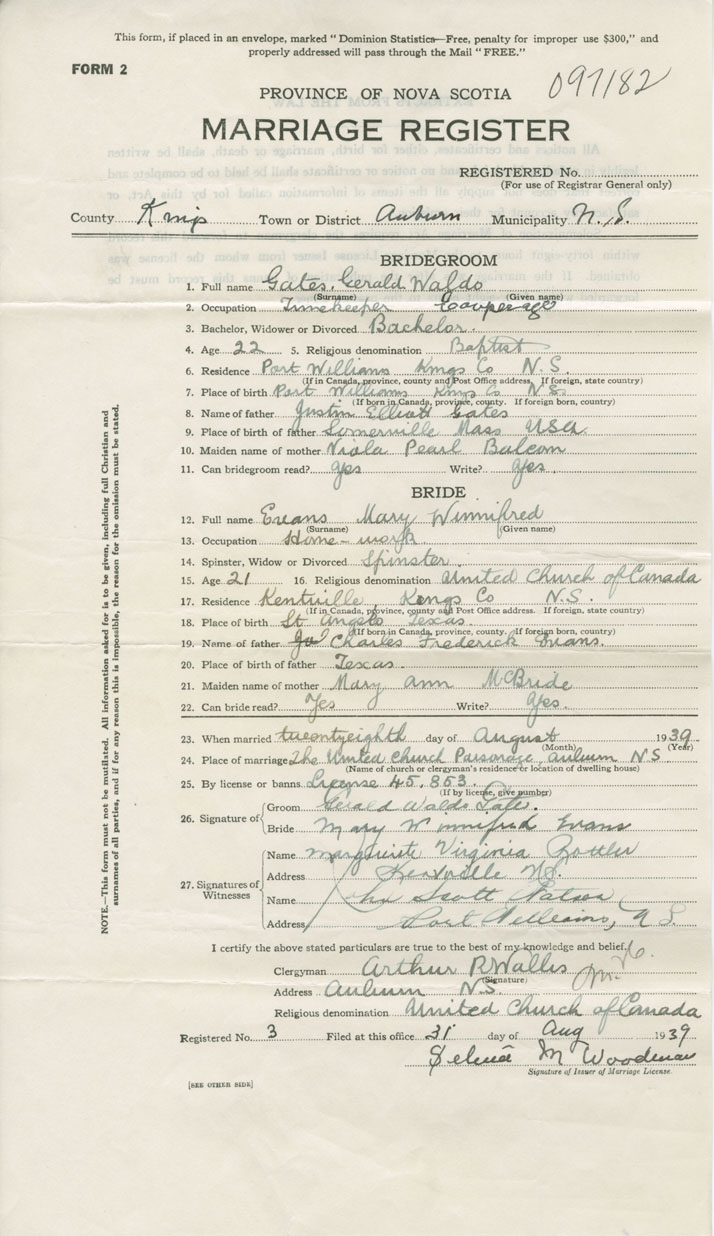 This form, if placed in an envelope, marked "Dominion Statistics—Free, penalty for improper use $300," and
properly addressed will pass through the Mail "FREE."
FORM 2
097182
PROVINCE OF NOVA SCOTIA
MARRIAGE REGISTER
REGISTERED No.
(For use of Registrar General only)
County Kings Town or District Auburn Municipality N.S.
BRIDEGROOM
1. Full name Gates, Gerald Waldo
(Surname) (Given name)
2. Occupation Timekeeper Cooperage
3. Bachelor, Widower or Divorced Bachelor.
4. Age 22 5. Religious denomination Baptist
6. Residence Port Williams Kings Co N.S.
(If in Canada, province, county and Post Office address. If foreign, state country)
7. Place of birth Port Williams Kings Co N.S.
(If born in Canada, province, county. If foreign born, country)
8. Name of father Justin Elliott Gates
9. Place of birth of father Somerville Mass USA.
10. Maiden name of mother Viola Pearl Balcom
11. Can bridegroom read? yes Write? yes.
BRIDE
12. Full name Evans Mary Winnifred
(Surname) (Given name)
13. Occupation Home-work
14. Spinster, Widow or Divorced Spinster.
15. Age 21 16. Religious denomination United Church of Canada
17. Residence Kentville Kings Co N.S.
(If in Canada, province, county and Post Office address. If foreign, state country)
18. Place of birth St Angelo Texas.
(If born in Canada, province, county. If foreign born, country)
19. Name of father Charles Frederick Evans.
20. Place of birth of father Texas.
21. Maiden name of mother Mary Ann McBride
22. Can bride read? Yes Write? Yes.
23. When married twentyeighth day of August 1939
(Month) (Year)
24. Place of marriage The United Church Parsonage, Auburn N S
(Name of church or clergyman's residence or location of dwelling house)
25. By license or banns License 45,853.
(If by license, give number)
26. Signature of Groom Gerald Waldo Gates.
Bride Mary Winnifred Evans
27. Signatures of Witnesses
Name Marguerite Virginia
Address Kentville N.S.
Name John Scott
Address Port Williams, N.S.
I certify the above stated particulars are true to the best of my knowledge and belief.
Clergyman Arthur R Wallis
(Signature)
Address Auburn N.S.
Religious denomination United Church of Canada
Registered No. 3 Filed at this office 31 day of Aug 1939
Selena M Woodman
Signature of Issuer of Marriage License.
[SEE OTHER SIDE]
NOTE.—This form must not be mutilated. All information asked for is to be given, including full Christian and
surnames of all parties, and if for any reason this is impossible, the reason for the omission must be stated.